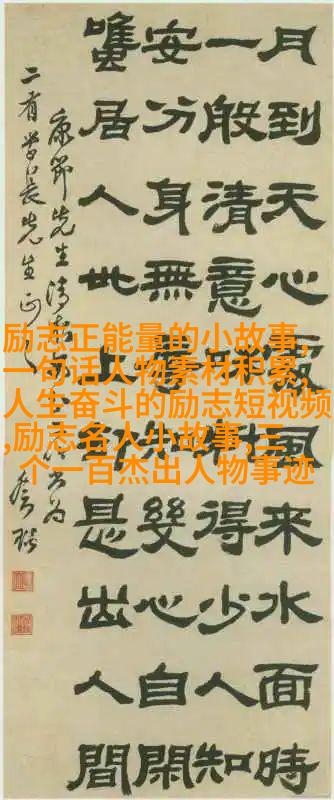 月到天心處風來水面時
一般清意味料得少人知
安分身無辱知幾心自閑
雖居人世上卻是出人間
康節先生清
二有學長先生正
励志正能量的小故事,
一句话人物素材积累,
人生奋斗的励志短视频
,励志名人小故事,三
个一百杰出人物事迹